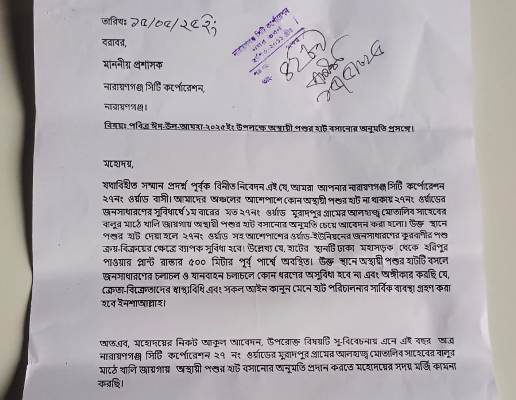 তারিখঃ ১৫/০৫/২৫ ইং
বরাবর,
মাননীয় প্রশাসক
নারায়ণগঞ্জ সিটি কর্পোরেশন,
নারায়ণগঞ্জ।
বিষয়ঃ পবিত্র ঈদ-উল-আযহা-২০২৫ইং উপলক্ষে অস্থায়ী পশুর হাট বসানোর অনুমতি প্রসংগে।
মহোদয়,
যথাবিহীত সম্মান প্রদর্শ পূর্বক বিনীত নিবেদন এই যে, আমরা আপনার নারায়ণগঞ্জ সিটি কর্পোরেশন
২৭নং ওর্য়াড বাসী। আমাদের অঞ্চলের আশেপাশে কোন অস্থায়ী পশুর হাট না থাকায় ২৭নং ওর্য়াডের
জনসাধারণের সুবিধার্থে ১ম বারের মত ২৭নং ওর্য়াড মুরাদপুর গ্রামের আলহাজ্ব মোতালিব সাহেবের
বালুর মাঠে খালি জায়গায় অস্থায়ী পশুর হাট বসানোর অনুমতি চেয়ে আবেদন করা হলো। উক্ত স্থানে
পশুর হাট দেয়া হলে ২৭নং ওর্য়াড সহ আশেপাশের ওর্য়াড-ইউনিয়নের জনসাধারণের কুরবানীর পশু
ক্রয়-বিক্রয়ের ক্ষেত্রে ব্যাপক সুবিধা হবে। উল্লেখ্য যে, হাটের স্থানটি ঢাকা মহাসড়ক থেকে হরিপুর
পাওয়ার প্লান্ট রাস্তার ৫০০ মিটার পূর্ব পার্শ্বে অবস্থিত। উক্ত স্থানে অস্থায়ী পশুর হাটটি বসলে
জনসাধারণের চলাচল ও যানবাহন চলাচলে কোন ধরণের অসুবিধা হবে না এবং অঙ্গীকার করছি যে,
ক্রেতা-বিক্রেতাদের স্বাস্থ্যবিধি এবং সকল আইন কানুন মেনে হাট পরিচালনার সার্বিক ব্যবস্থা গ্রহণ করা
হবে ইনশাআল্লাহ।
অতএব, মহোদয়ের নিকট আকুল আবেদন, উপরোক্ত বিষয়টি সু-বিবেচনায় এনে এই বছর অত্র
নারায়ণগঞ্জ সিটি কর্পোরেশন ২৭ নং ওর্য়াডের মুরাদপুর গ্রামের আলহাজ্ব মোতালিব সাহেবের বালুর
মাঠে খালি জায়গায় অস্থায়ী পশুর হাট বসানোর অনুমতি প্রদান করতে মহোদয়ের সদয় মর্জি কামনা
করছি।